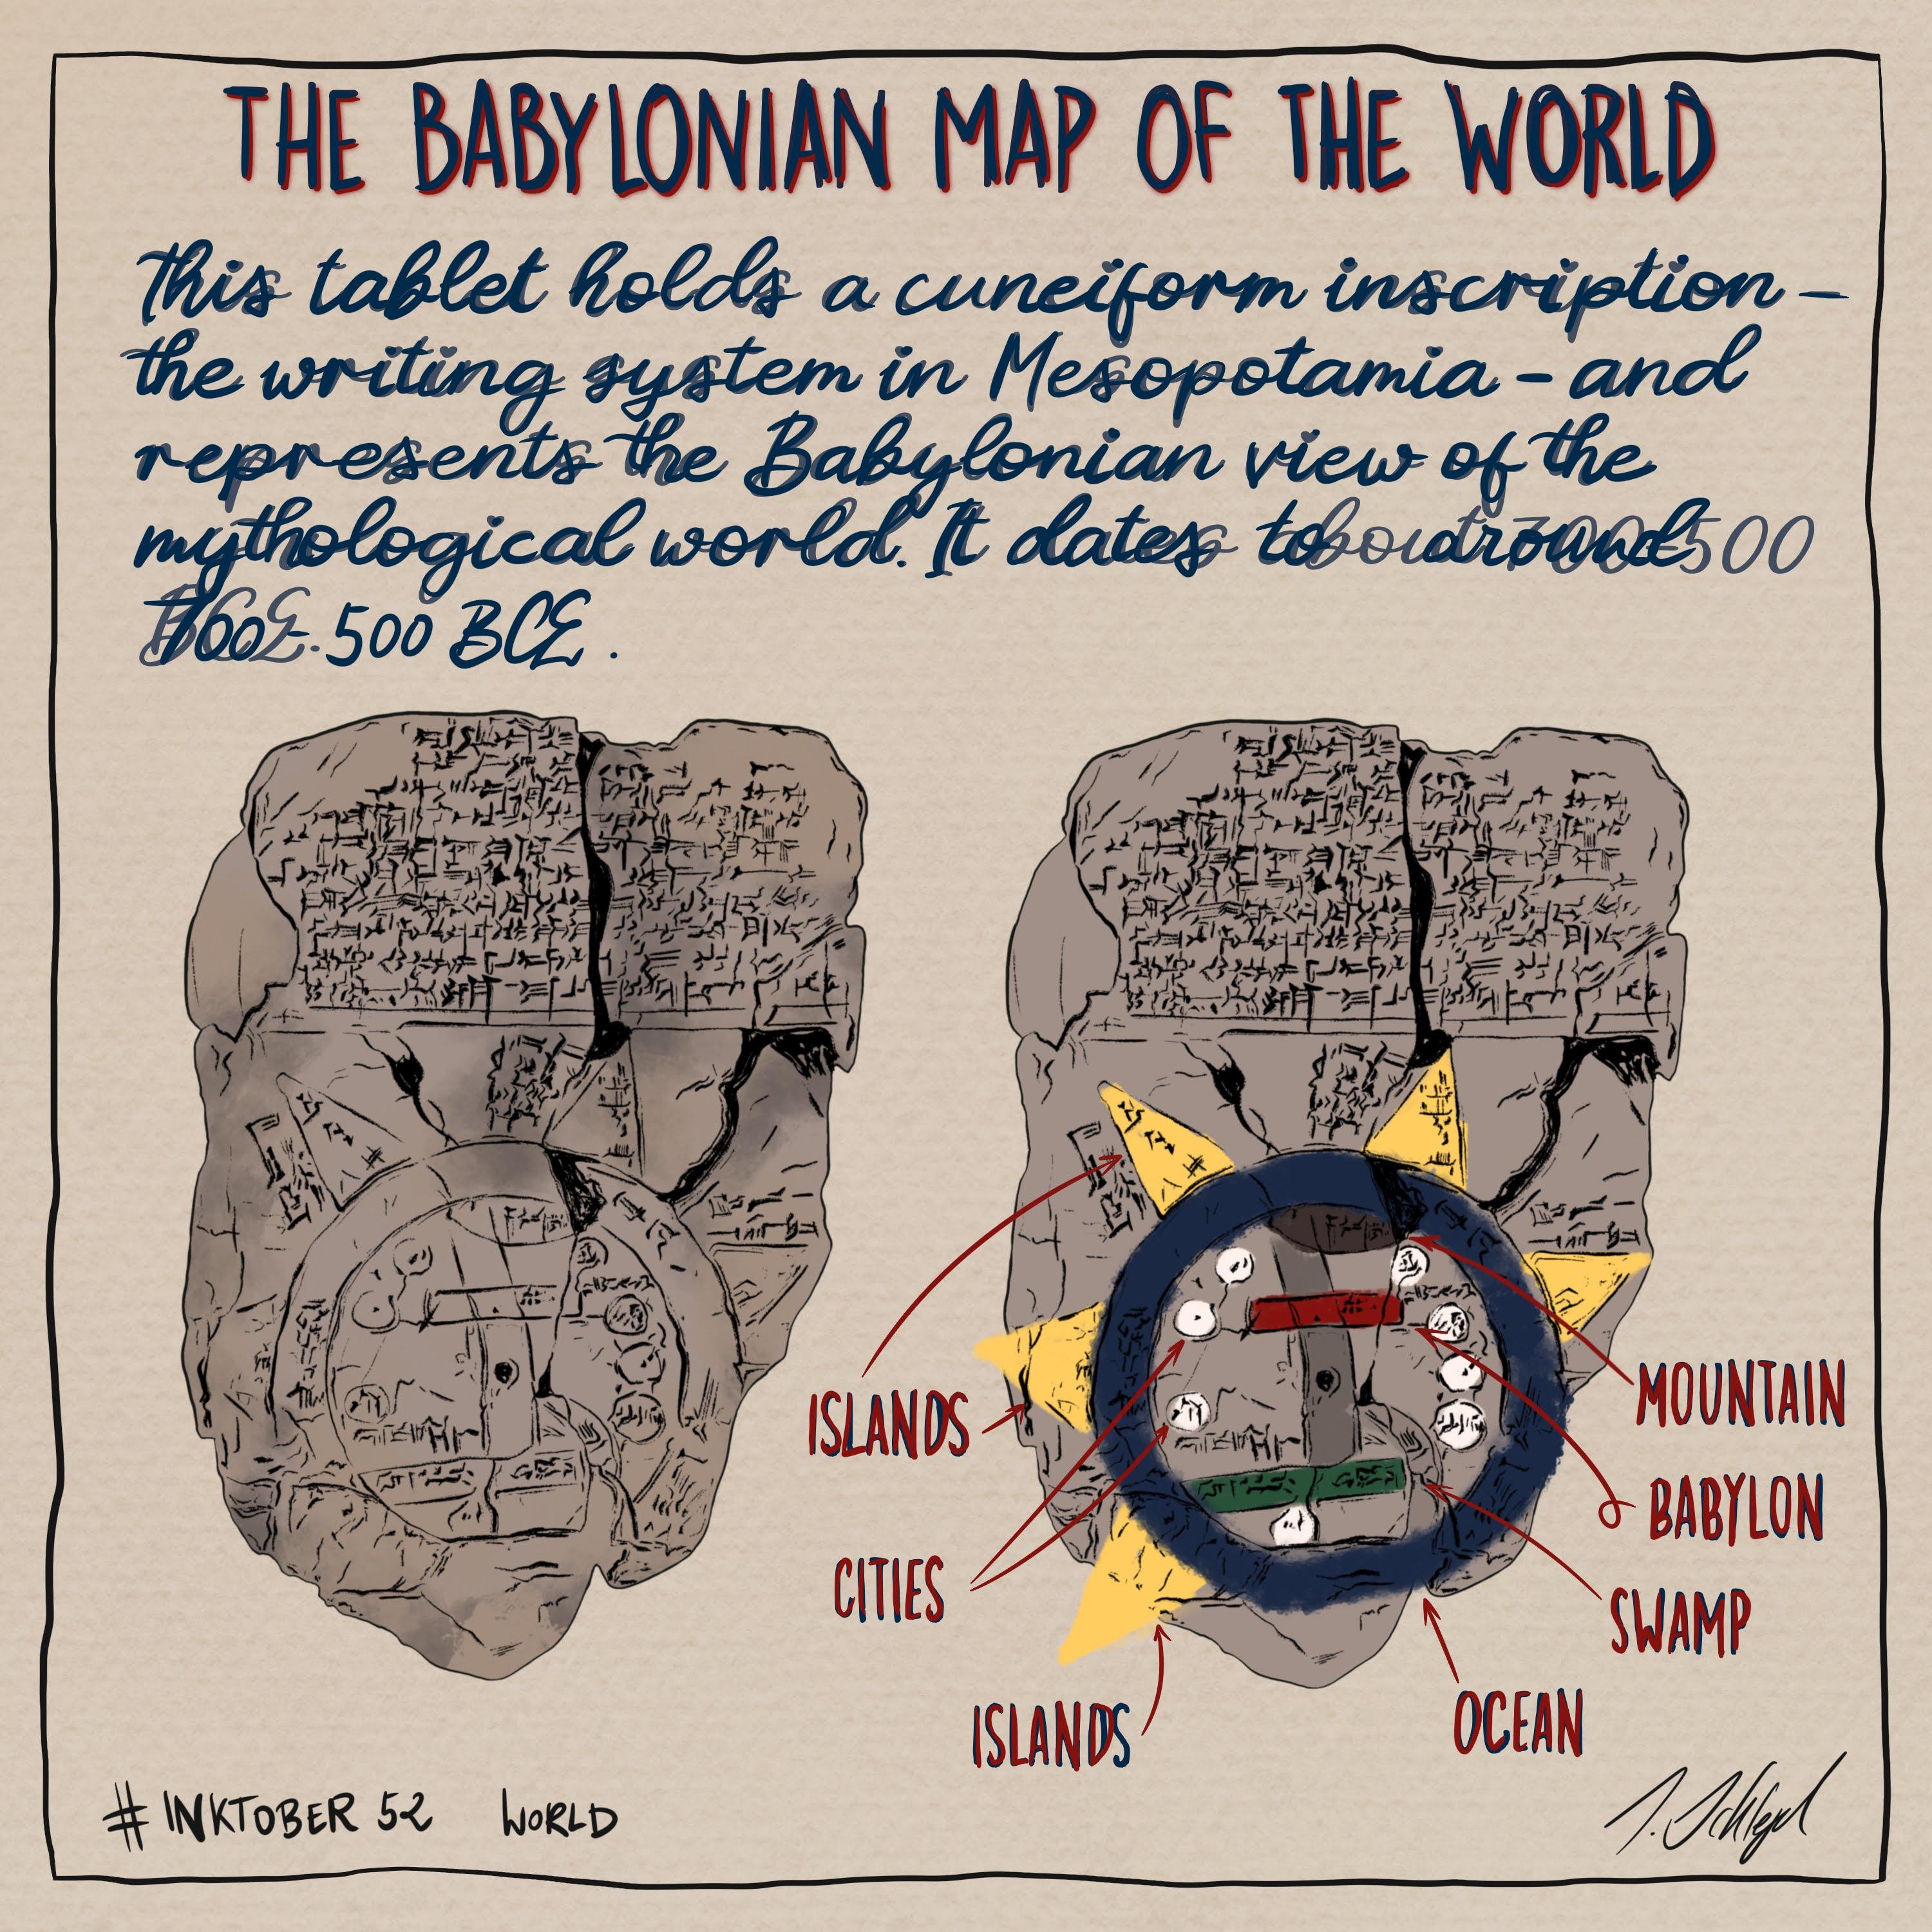 THE BABYLONIAN MAP OF THE WORLD
This tablet holds a cuneiform inscription –
the writing system in Mesopotamia – and
represents the Babylonian view of the
mythological world. It dates to around
700 - 500 BCE.
ISLANDS
CITIES
ISLANDS
MOUNTAIN
BABYLON
SWAMP
OCEAN
# INKTOBER 52 WORLD